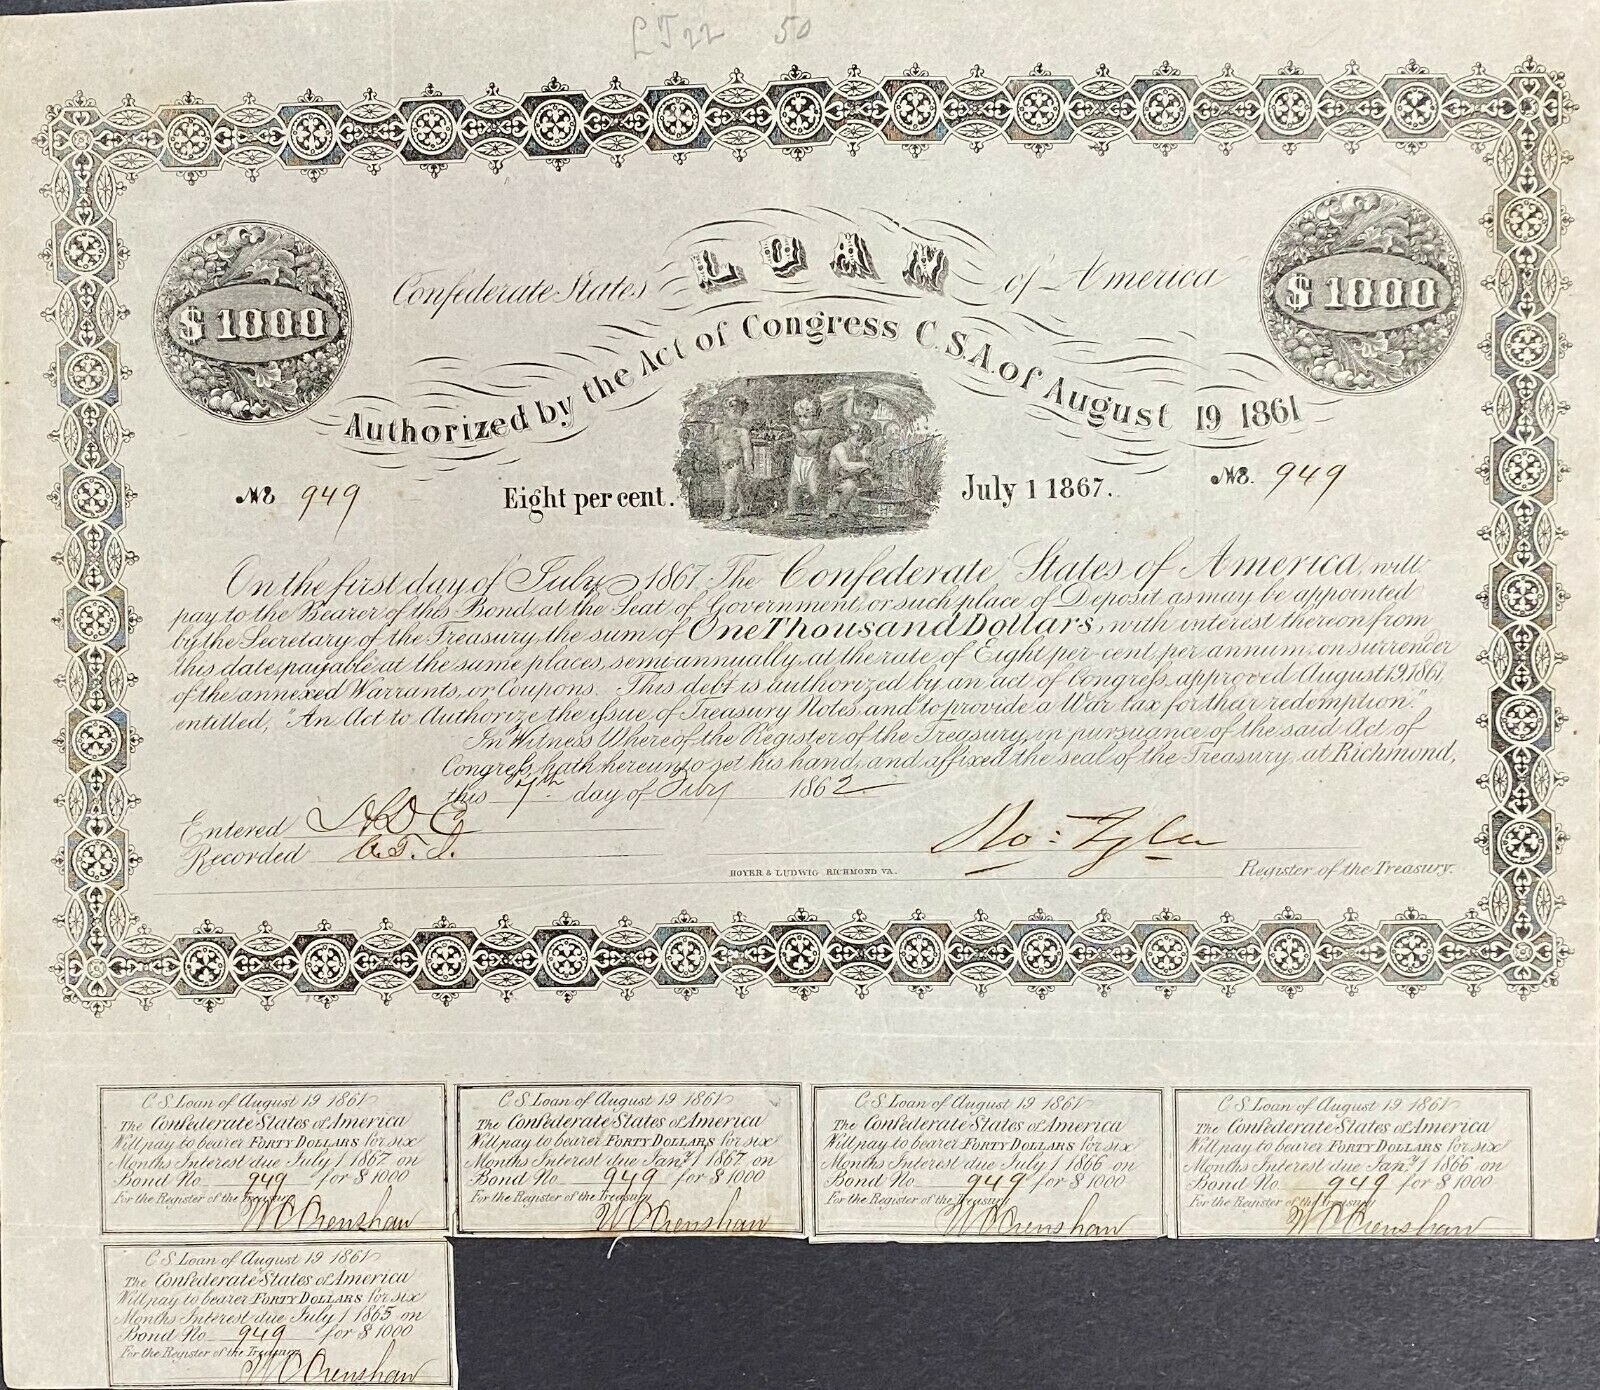 50
LOAN
Confederate States of America
$ 1000
$ 1000
Authorized by the Act of Congress C.S.A. of August 19 1861
No 949
Eight per cent.
July 1 1867.
No. 949
On the first day of July 1867, The Confederate States of America, will
pay to the Bearer of this Bond, at the Seat of Government, or such place of Deposit, as may be appointed
by the Secretary of the Treasury, the sum of One Thousand Dollars, with interest thereon from
this date, payable at the same places, semi-annually, at the rate of Eight per-cent, per annum, on surrender
of the annexed Warrants, or Coupons. This debt is authorized by an act of Congress, approved August 19, 1861,
entitled, "An Act to Authorize the issue of Treasury Notes, and to provide a War tax for their redemption."
In Witness Whereof, the Register of the Treasury, in pursuance of the said Act of
Congress, hath hereunto set his hand, and affixed the seal of the Treasury, at Richmond,
this day of July 1862
Entered
Recorded
Ro: Tyler
HOYER & LUDWIG RICHMOND VA.
Register of the Treasury.
C.S. Loan of August 19 1861
The Confederate States of America
Will pay to bearer FORTY DOLLARS for six
Months Interest due July 1 1867 on
Bond No 949 for $1000
For the Register of the Treasury
W C Crenshaw
C.S. Loan of August 19 1861
The Confederate States of America
Will pay to bearer FORTY DOLLARS for six
Months Interest due Jany 1 1867 on
Bond No 949 for $1000
For the Register of the Treasury
W C Crenshaw
C.S. Loan of August 19 1861
The Confederate States of America
Will pay to bearer FORTY DOLLARS for six
Months Interest due July 1 1866 on
Bond No 949 for $1000
For the Register of the Treasury
W C Crenshaw
C.S. Loan of August 19 1861
The Confederate States of America
Will pay to bearer FORTY DOLLARS for six
Months Interest due Jany 1 1866 on
Bond No 949 for $1000
For the Register of the Treasury
W C Crenshaw
C.S. Loan of August 19 1861
The Confederate States of America
Will pay to bearer FORTY DOLLARS for six
Months Interest due July 1 1865 on
Bond No 949 for $1000
For the Register of the Treasury
W C Crenshaw